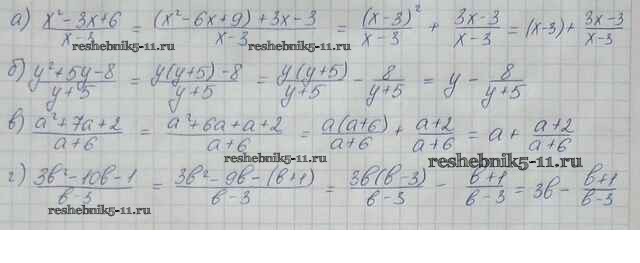 а) (x²-3x+6)/(x-3) = ((x²-6x+9)+3x-3)/(x-3) = (x-3)²/(x-3) + (3x-3)/(x-3) = (x-3) + (3x-3)/(x-3)
reshebnik5-11.ru reshebnik5-11.ru reshebnik5-11.ru
б) (y²+5y-8)/(y+5) = (y(y+5)-8)/(y+5) = y(y+5)/(y+5) - 8/(y+5) = y - 8/(y+5)
reshebnik5-11.ru
в) (a²+7a+2)/(a+6) = (a²+6a+a+2)/(a+6) = a(a+6)/(a+6) + (a+2)/(a+6) = a + (a+2)/(a+6)
reshebnik5-11.ru reshebnik5-11.ru
г) (3в²-10в-1)/(в-3) = (3в²-9в-(в+1))/(в-3) = 3в(в-3)/(в-3) - (в+1)/(в-3) = 3в - (в+1)/(в-3)
reshebnik5-11.ru reshebnik5-11.ru